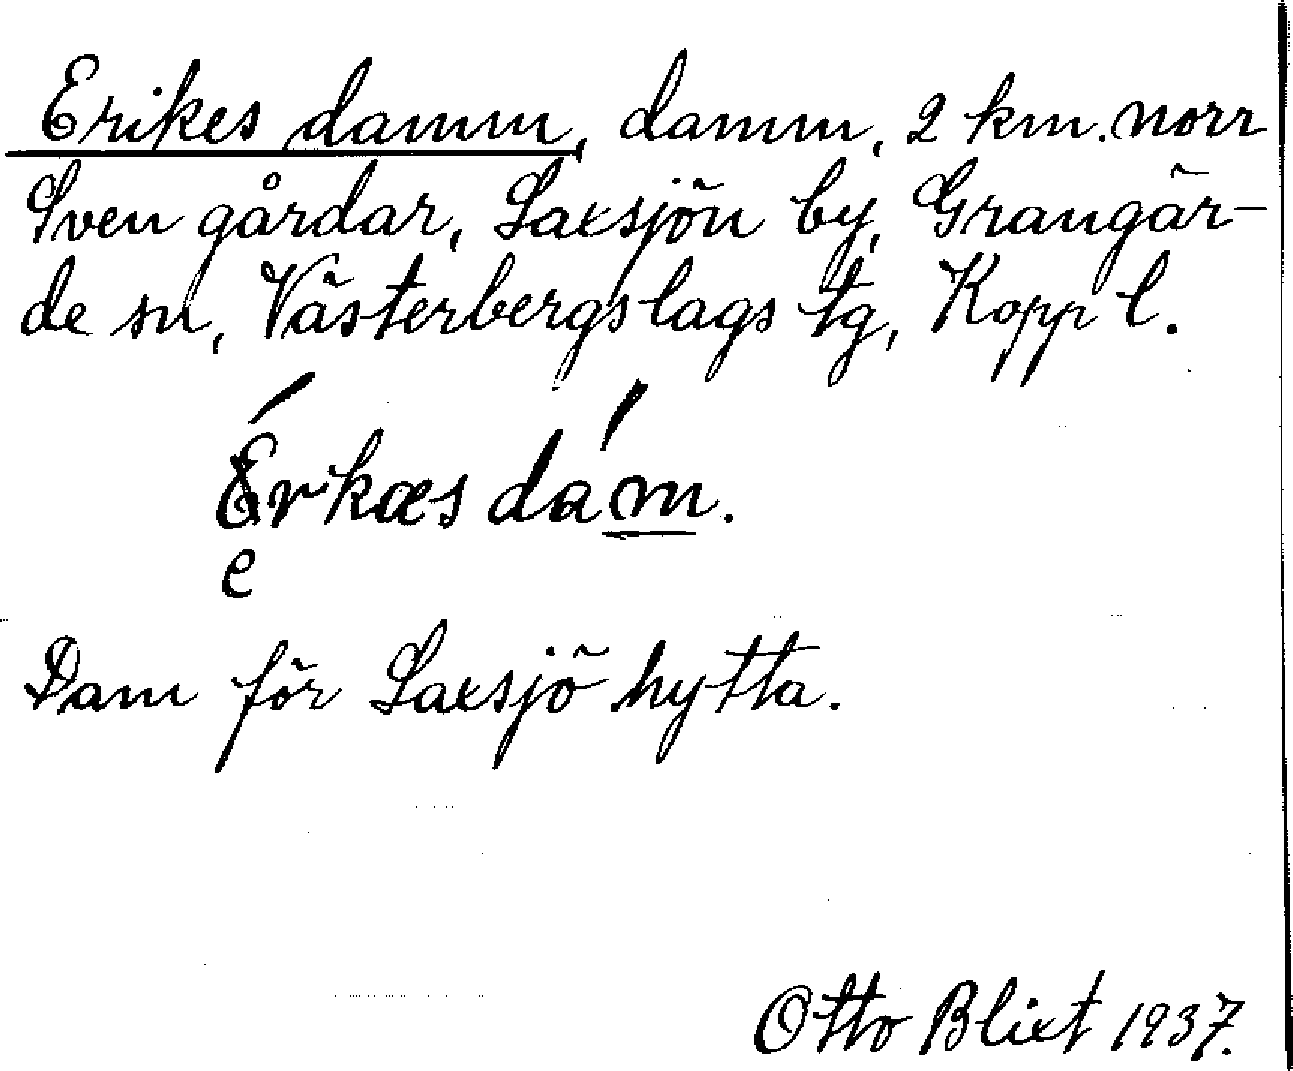 Erikes damm, damm, 2 km. norr
Sven gårdar, Saxsjön by, Grangär-
de sn, Västerbergslags tg, Kopp l.
Erkæs dam.
e
Dam för Saxsjö hytta.
Otto Blixt 1937.